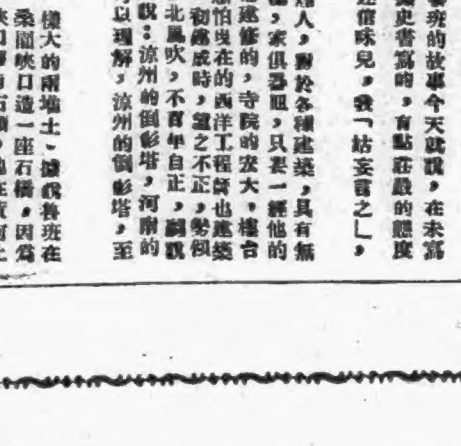 班的故事今天就說，在未寫
史書寫時，有點莊嚴的態度
信味兒，我「姑妄言之」，
人，對於各種建築，具有無
，家俱器皿，只要一經他的
建修的，寺院的宏大，樓台
怕現在的西洋工程師也建築
初建成時，望之不正，勢傾
北風吹，不百年自正，嗣說
說：涼州的倒影塔，河南的
以理解，涼州的倒影塔，至
樣大的兩堆土、據說魯班在
桑園峽口造一座石橋，因為